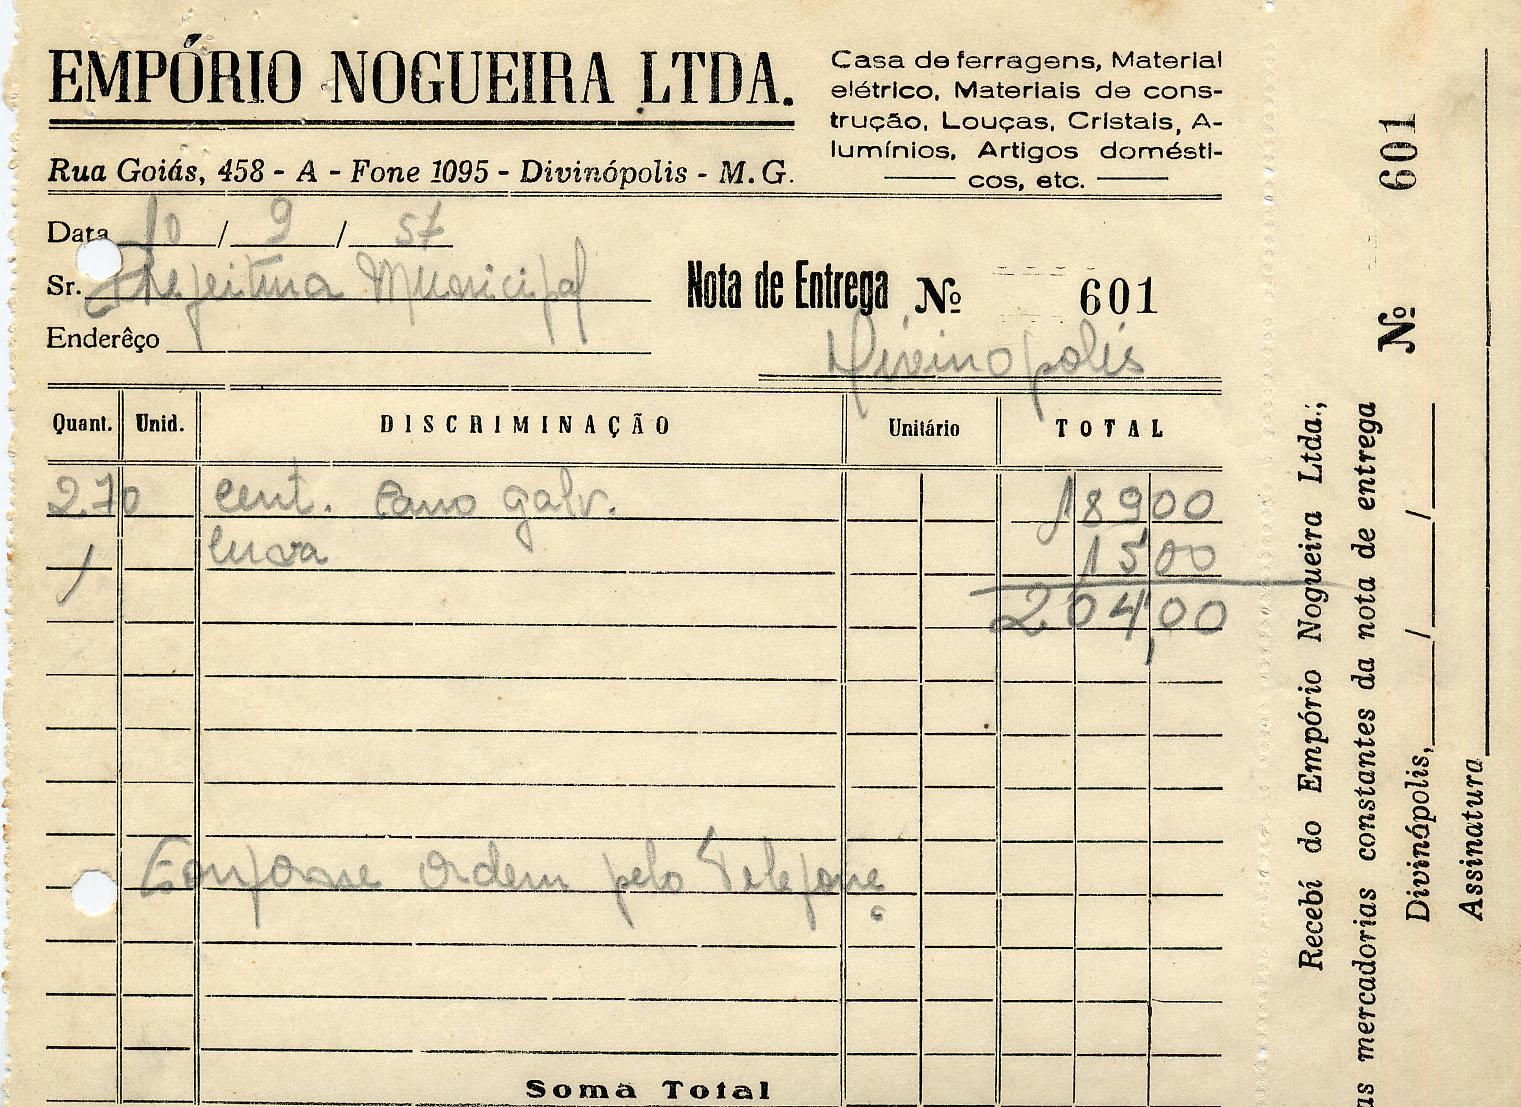 EMPÓRIO NOGUEIRA LTDA.
Casa de ferragens, Material
elétrico, Materiais de cons-
trução, Louças, Cristais, A-
lumínios, Artigos domésti-
cos, etc.
Rua Goiás, 458 - A - Fone 1095 - Divinópolis - M. G.
Data 10 / 9 / 57
Sr. Prefeitura Municipal
Nota de Entrega Nº 601
Enderêço
Divinopolis
Quant. Unid. DISCRIMINAÇÃO Unitário TOTAL
2.70 cent. Cano galv. 18900
1 luva 1500
204,00
Conforme ordem pelo Telefone
Soma Total
Nº 601
Recebí do Empório Nogueira Ltda.,
as mercadorias constantes da nota de entrega
Divinópolis, / /
Assinatura